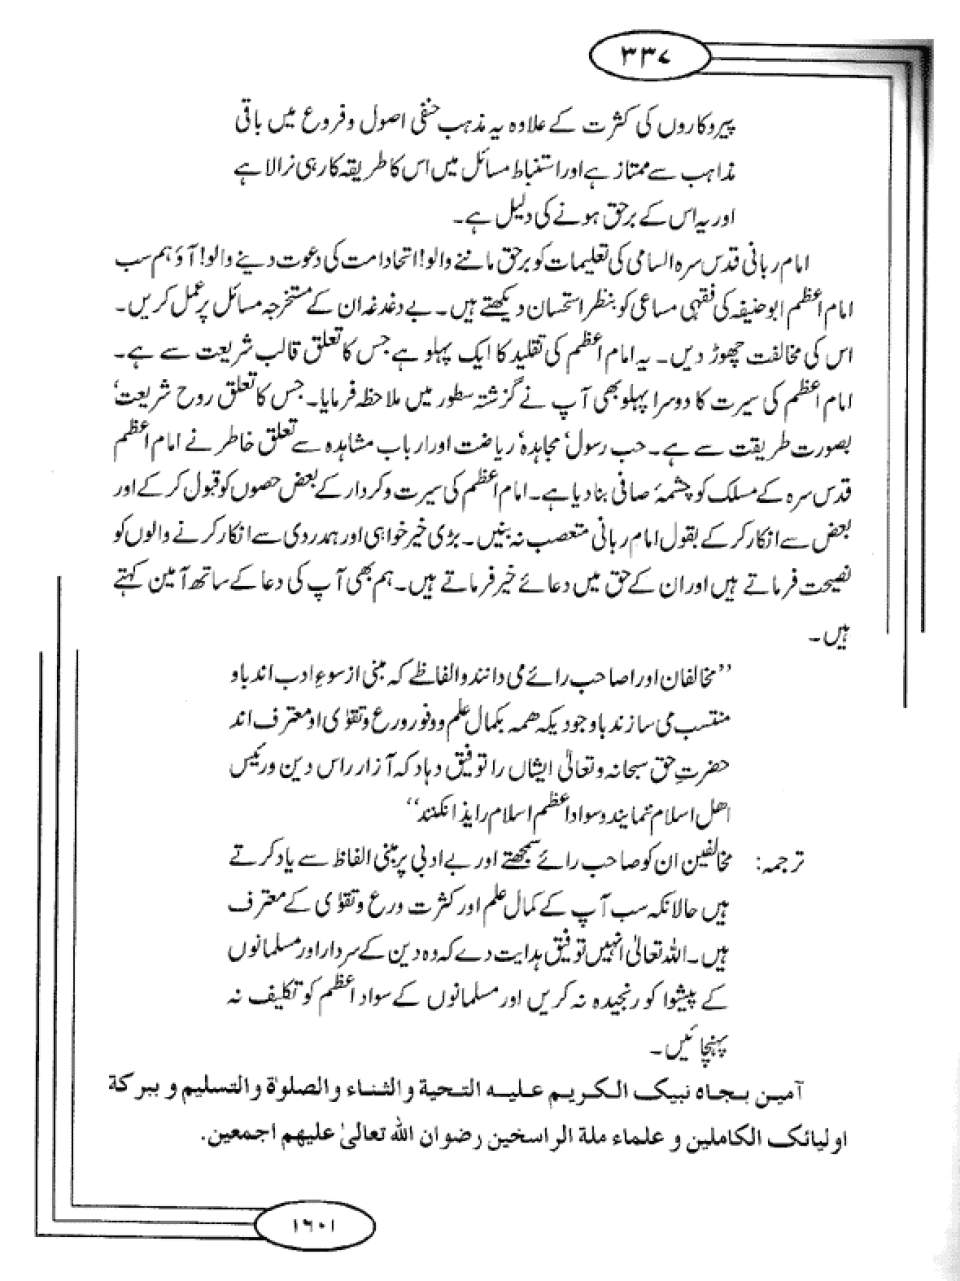 ۳۳۷
پیروکاروں کی کثرت کے علاوہ یہ مذہب حنفی اصول و فروع میں باقی
مذاہب سے ممتاز ہے اور استنباط مسائل میں اس کا طریقہ کار ہی نرالا ہے
اور یہ اس کے برحق ہونے کی دلیل ہے۔
امام ربانی قدس سرہ السامی کی تعلیمات کو برحق ماننے والو! اتحاد امت کی دعوت دینے والو! آؤ ہم سب
امام اعظم ابوحنیفہ کی فقہی مساعی کو بنظر استحسان دیکھتے ہیں۔ بے دغدغہ ان کے مستخرجہ مسائل پر عمل کریں۔
اس کی مخالفت چھوڑ دیں۔ یہ امام اعظم کی تقلید کا ایک پہلو ہے جس کا تعلق قالب شریعت سے ہے۔
امام اعظم کی سیرت کا دوسرا پہلو بھی آپ نے گزشتہ سطور میں ملاحظہ فرمایا۔ جس کا تعلق روح شریعت،
بصورت طریقت سے ہے۔ حب رسول، مجاہدہ، ریاضت اور ارباب مشاہدہ سے تعلق خاطر نے امام اعظم
قدس سرہ کے مسلک کو چشمۂ صافی بنا دیا ہے۔ امام اعظم کی سیرت و کردار کے بعض حصوں کو قبول کر کے اور
بعض سے انکار کر کے بقول امام ربانی متعصب نہ بنیں۔ بڑی خیر خواہی اور ہمدردی سے انکار کرنے والوں کو
نصیحت فرماتے ہیں اور ان کے حق میں دعائے خیر فرماتے ہیں۔ ہم بھی آپ کی دعا کے ساتھ آمین کہتے
ہیں۔
’’مخالفان او را صاحب رائے می دانند و الفاظے کہ مبنی از سوءِ ادب اند باو
منتسب می سازند باوجودیکہ ھمہ بکمال علم و وفور ورع و تقوٰی او معترف اند
حضرتِ حق سبحانہ و تعالیٰ ایشاں را توفیق دہاد کہ آزار راس دین و رئیس
اھل اسلام نمایند و سواد اعظم اسلام را ایذا نکنند‘‘
ترجمہ: مخالفین ان کو صاحب رائے سمجھتے اور بے ادبی پر مبنی الفاظ سے یاد کرتے
ہیں حالانکہ سب آپ کے کمال علم اور کثرت ورع و تقوٰی کے معترف
ہیں۔ اللہ تعالیٰ انہیں توفیق ہدایت دے کہ وہ دین کے سردار اور مسلمانوں
کے پیشوا کو رنجیدہ نہ کریں اور مسلمانوں کے سواد اعظم کو تکلیف نہ
پہنچائیں۔
آمین بجاہ نبیک الکریم علیہ التحیۃ والثناء والصلوٰۃ والتسلیم و ببرکۃ
اولیائک الکاملین و علماء ملۃ الراسخین رضوان اللہ تعالیٰ علیہم اجمعین.
۱۶۰۱